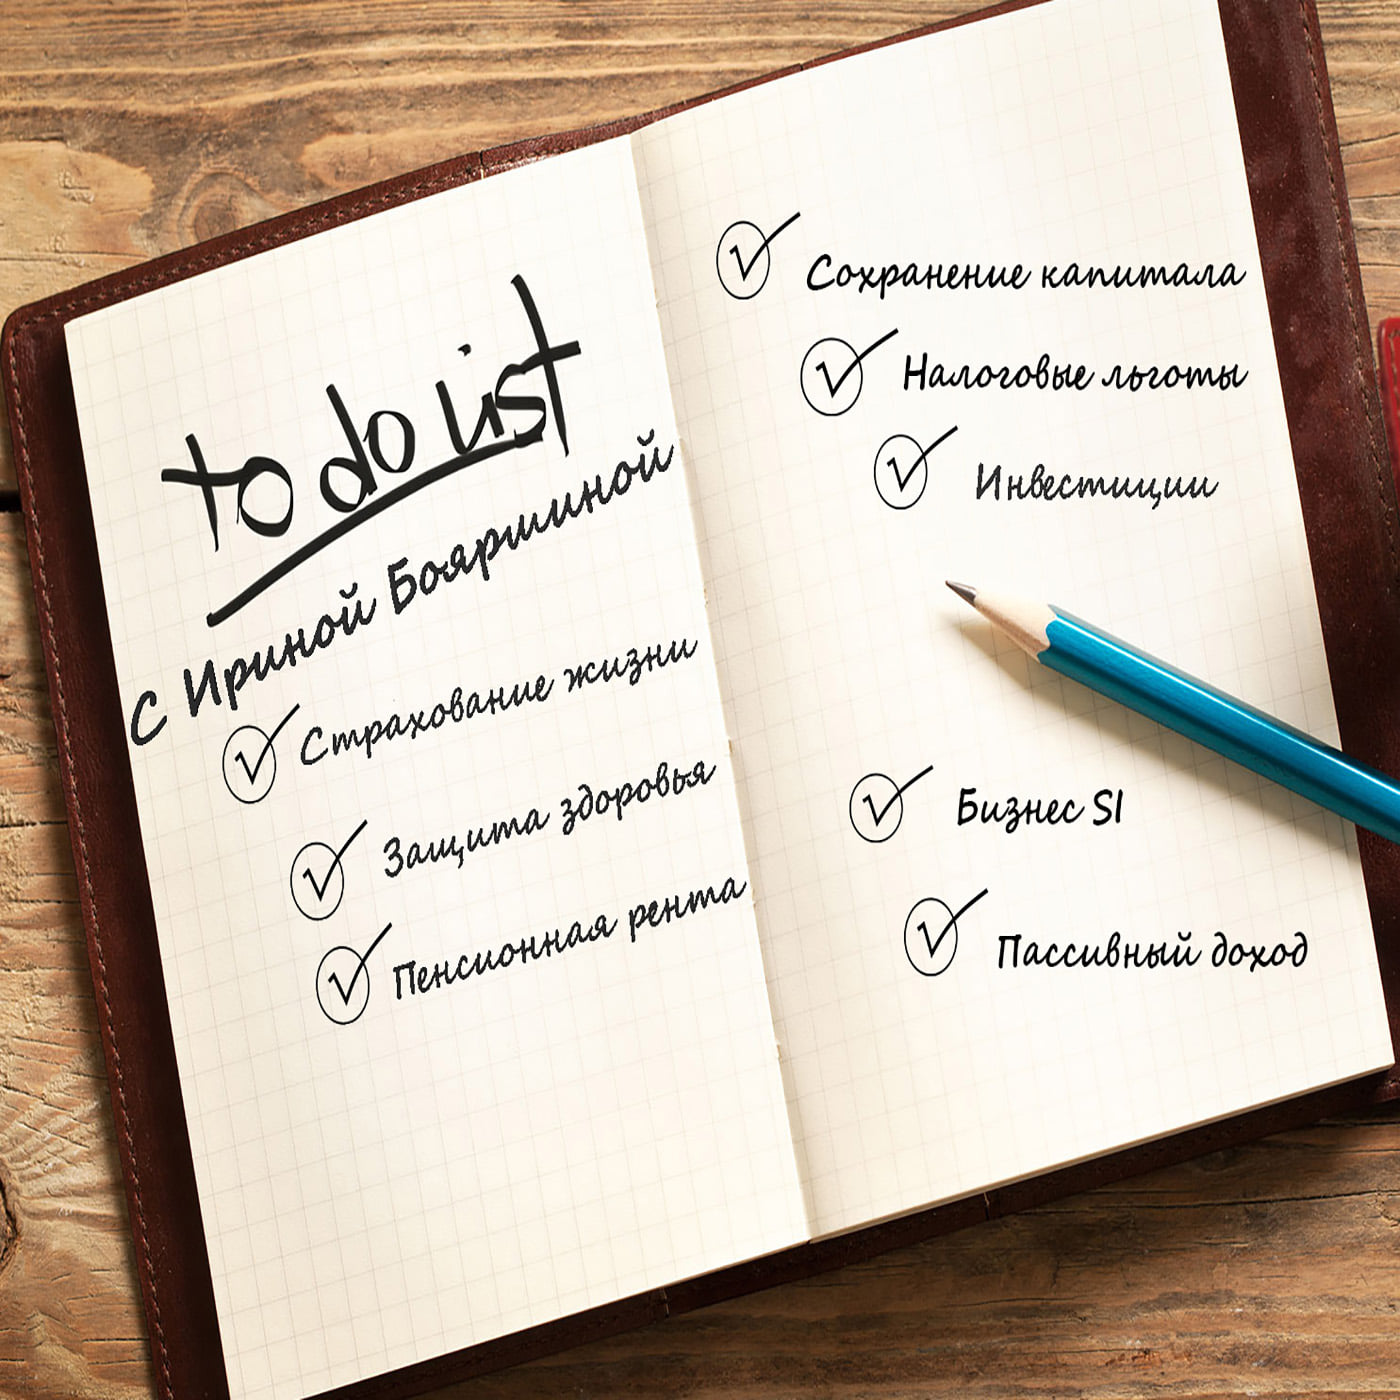 to do list
С Ириной Бояршиной
Страхование жизни
Защита здоровья
Пенсионная рента
Сохранение капитала
Налоговые льготы
Инвестиции
Бизнес SI
Пассивный доход